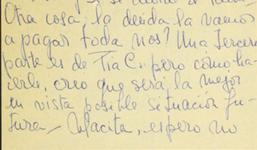 Otra cosa, la deuda la vamos
a pagar toda nos? Una tercera
parte es de Tía C. pero cómo ha-
cerle, creo que será lo mejor
en vista posible situación fu-
tura – , espero no